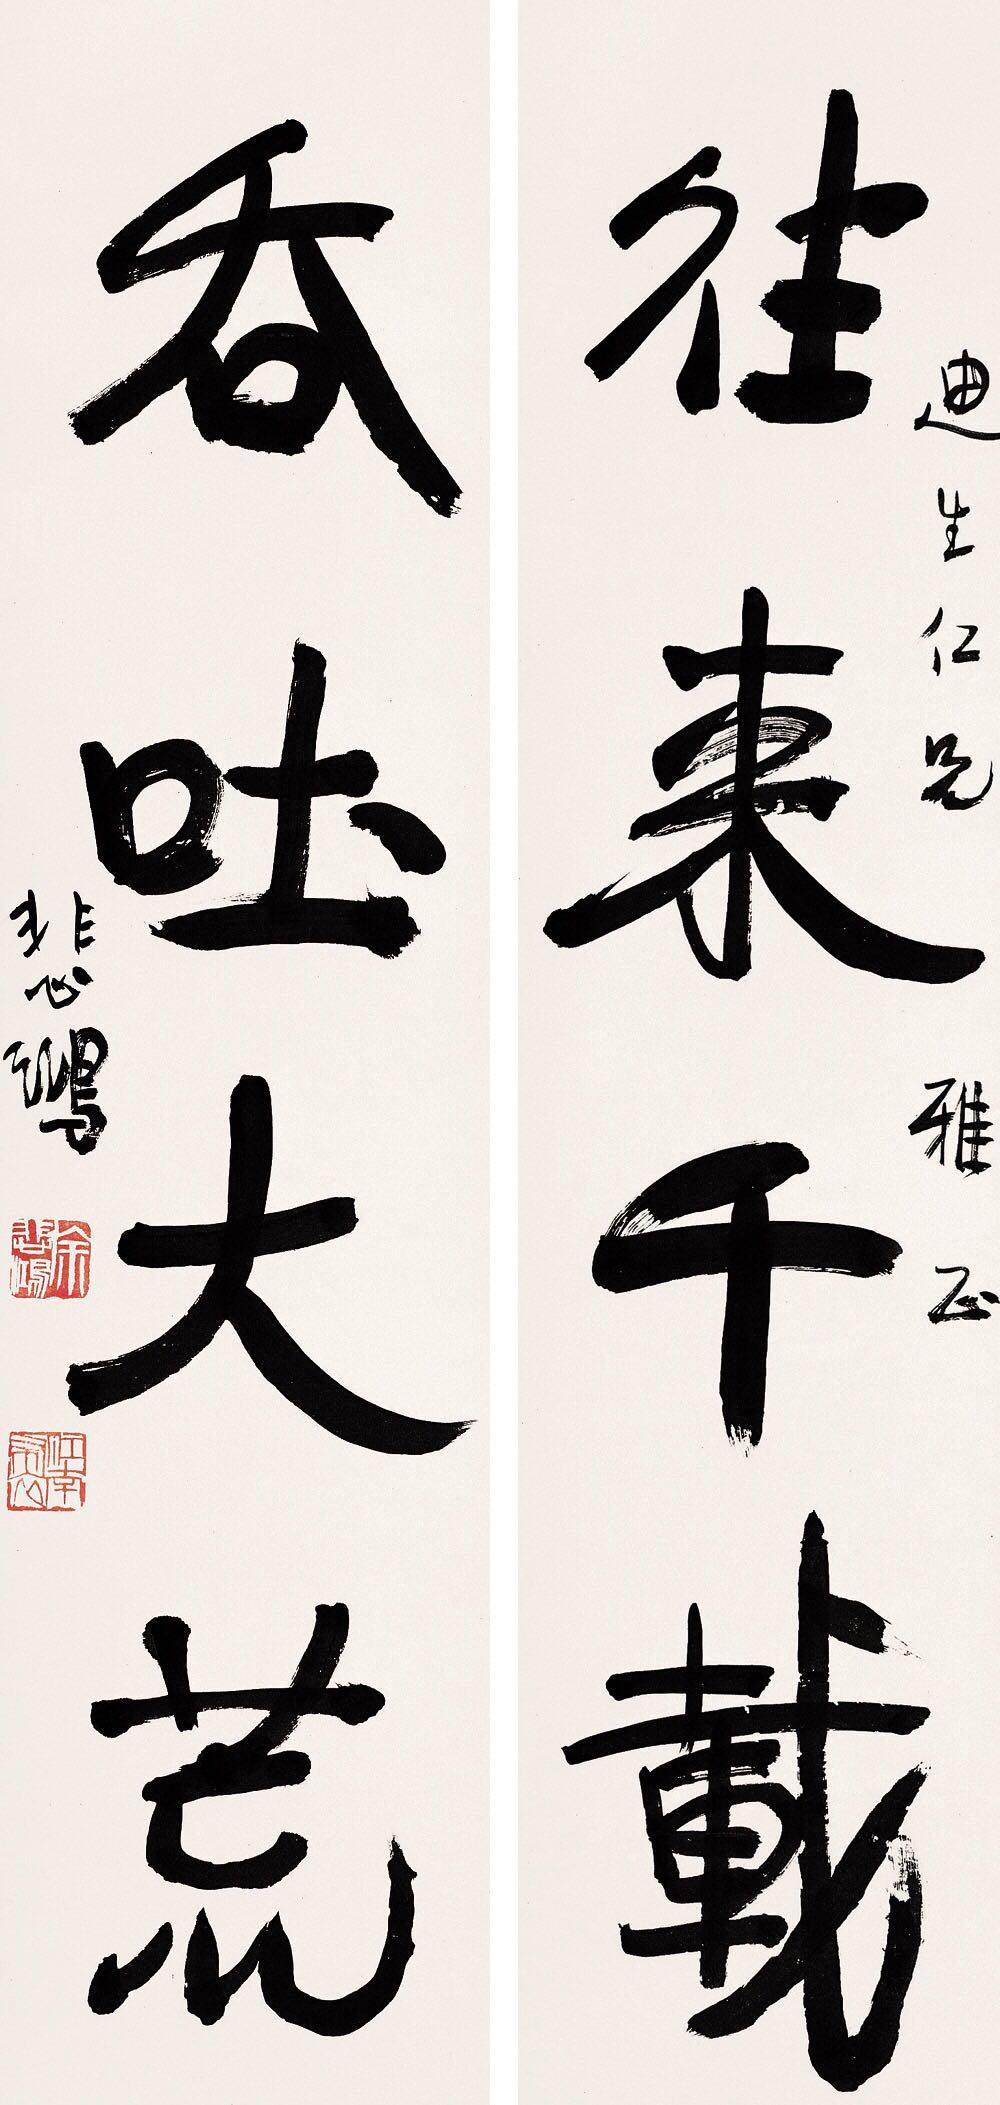 往來千載
迪生仁兄雅正
吞吐大荒
悲鴻
徐悲鴻
江南布衣